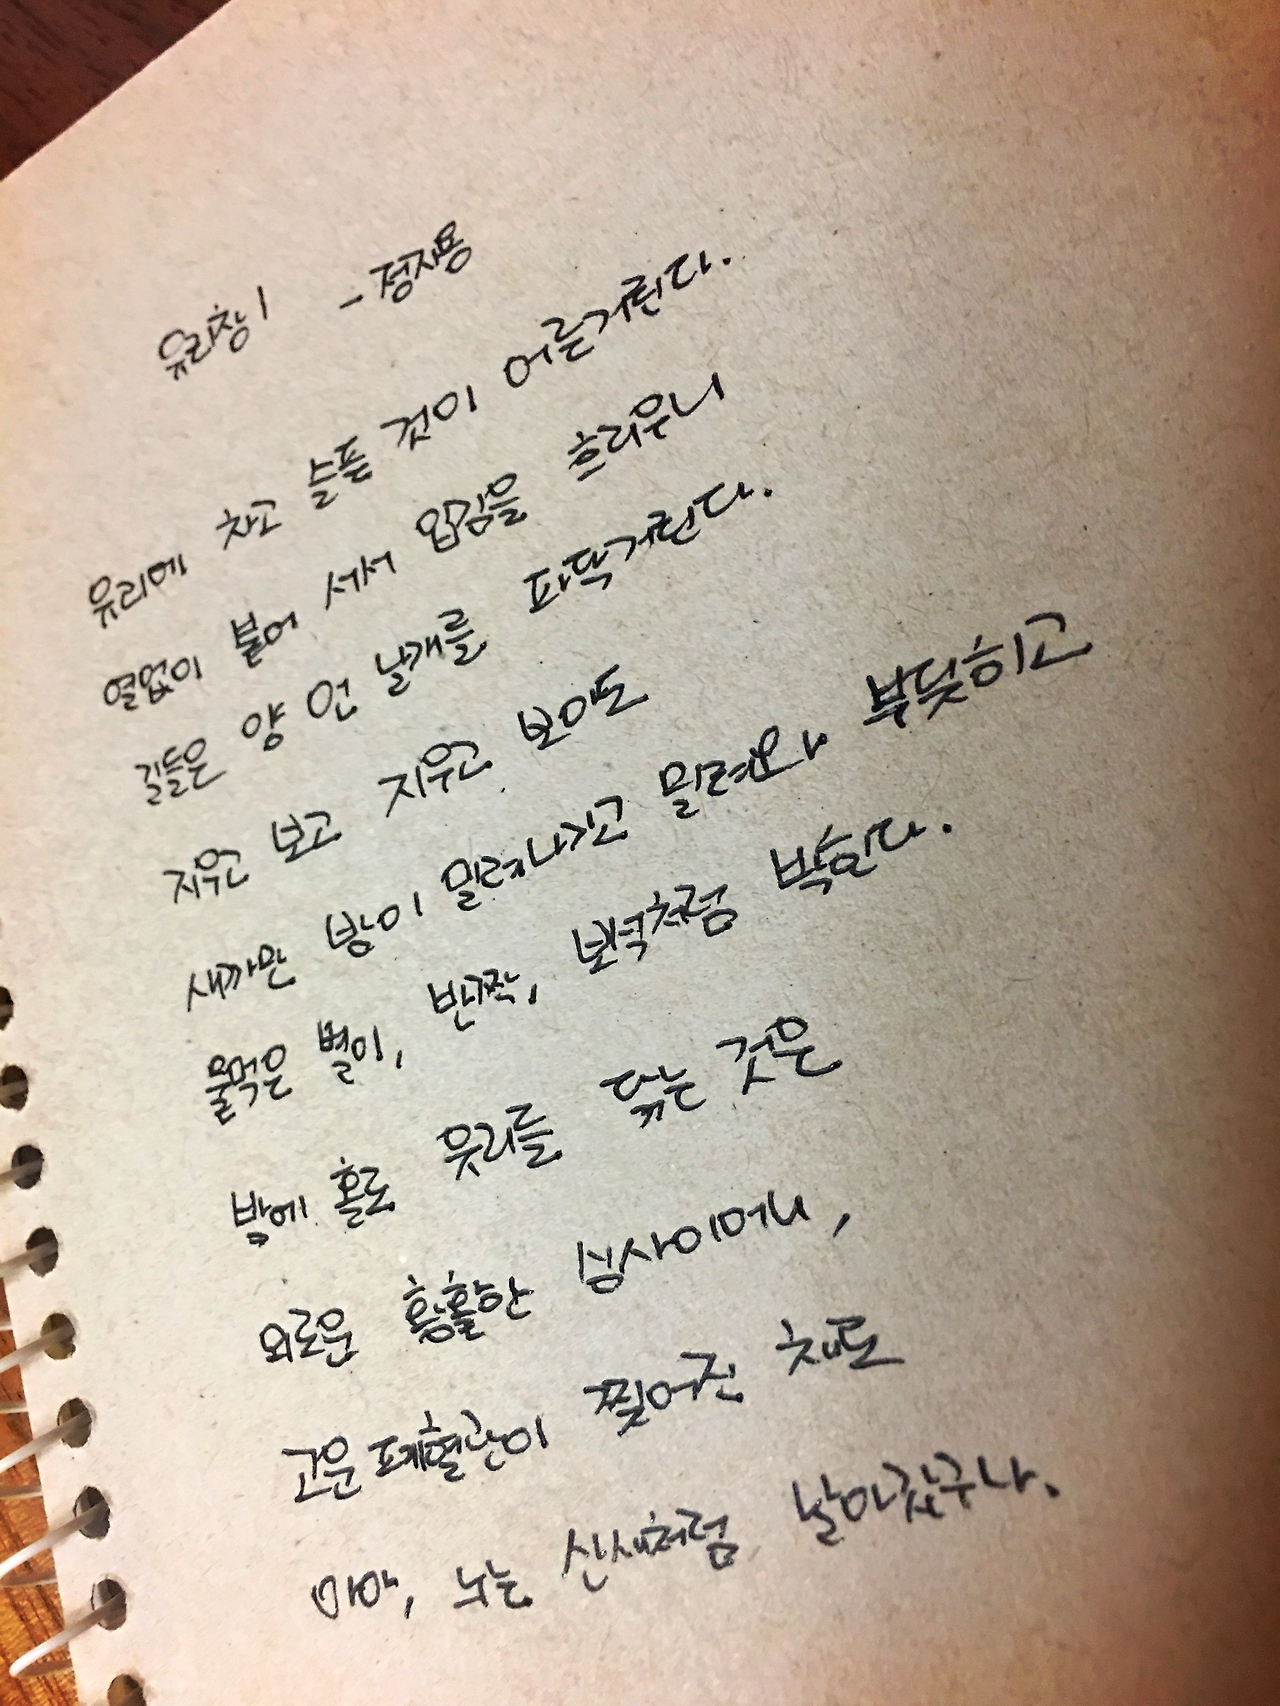 유리창 1 - 정지용
유리에 차고 슬픈 것이 어른거린다.
열없이 붙어 서서 입김을 흐리우니
길들은 양 언 날개를 파닥거린다.
지우고 보고 지우고 보아도
새까만 밤이 밀려나가고 밀려와 부딪히고
물먹은 별이, 반짝, 보석처럼 박힌다.
밤에 홀로 유리를 닦는 것은
외로운 황홀한 심사이어니,
고운 폐혈관이 찢어진 채로
아아, 너는 산새처럼 날아갔구나.